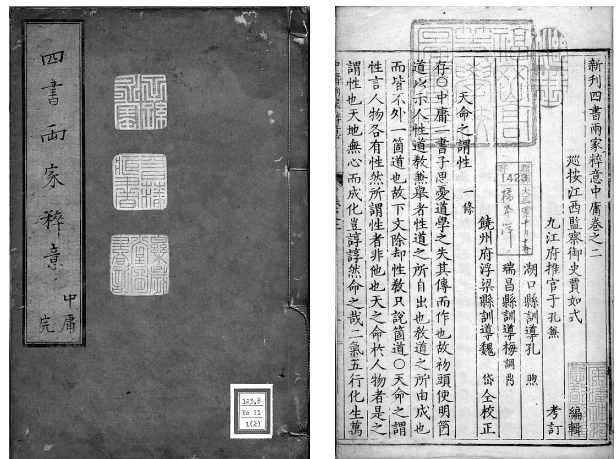 四書兩家稡意
中庸
完
123.8
Ka 11
1(2)
新刊四書兩家稡意中庸卷之二
廵按江西監察御史賈如式 編輯
九江府推官于孔兼 考訂
湖口縣訓導孔 煦
瑞昌縣訓導梅
饒州府浮梁縣訓導魏 岱 仝校正
天命之謂性 一條
存〇中庸一書子思憂道學之失其傳而作也故初頭便明箇
道以示人性道敎兼舉者性道之所自出也敎道之所由成也
而皆不外一箇道也故下文除却性敎只說箇道〇天命之謂
性言人物各有性然所謂性者非他也天之命於人物者是之
謂性也天地無心而成化豈諄諄然命之哉二氣五行化生萬
1423